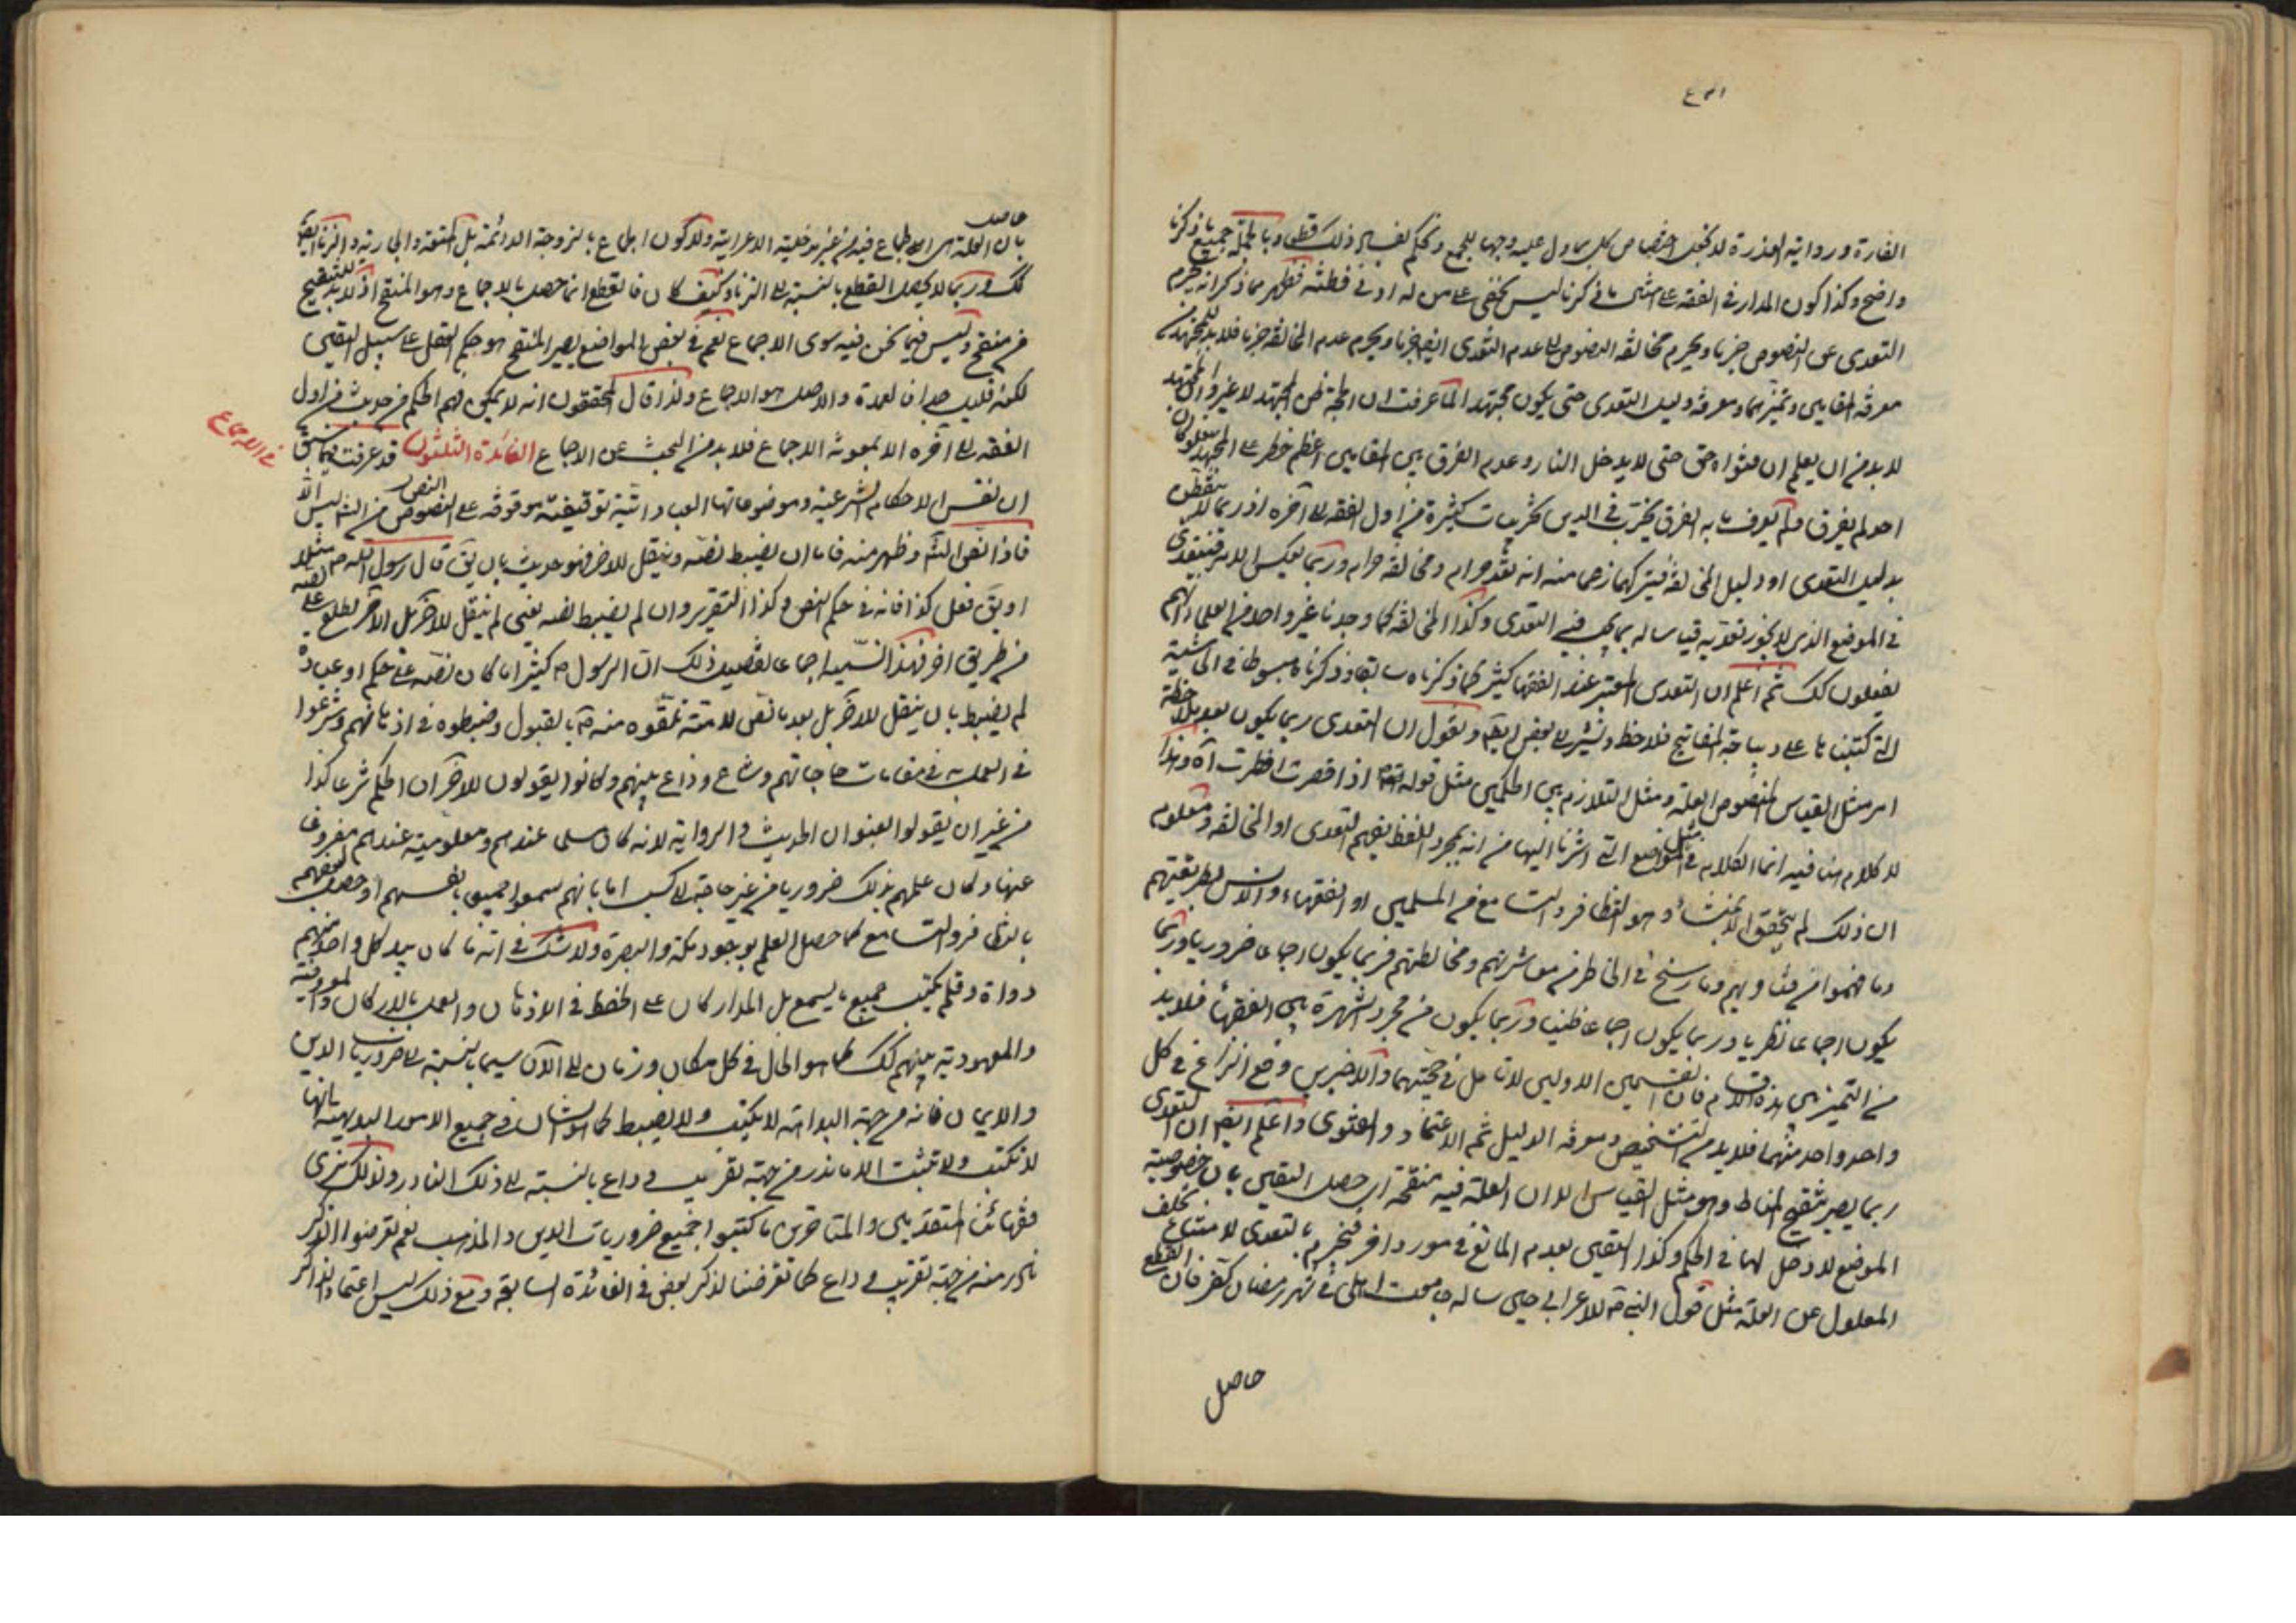 الفارة ورواية العذرة لا يخفى اختصاص كل بما ورد عليه وجها للجمع وتحكم بفساد ذلك قطعا وبالجملة جميع ما ذكرنا
واضح وكذا كون المدار في الفقه على امثال ما ذكرنا ليس يخفى على من له ادنى فطنة فظهر مما ذكر انه يحرم
التعدى عن النصوص جزما ويحرم مخالفة النصوص عدم التعدى ايضا جزما ويحرم عدم المخالفة جزما فلا بد للمجتهد من
معرفة المقامين وتميزهما ومعرفة دليل التعدى حتى يكون مجتهدا لما عرفت ان الحجة ظن المجتهد لا غير وان المجتهد
لا بد من ان يعلم ان فتواه حق حتى لا يدخل النار وعدم الفرق بين المقامين اعظم خطر على المجتهد فلو كان
احد لم يفرق ولم يعرف ما به الفرق يخرب في الدين تخريبات كثيرة من اول الفقه الى آخره اذ ربما لا يتفطن
بدليل التعدى او دليل المخالفة فيتركهما زعما منه انه تعد حرام ومخالفة حرام وربما يعكس الامر فيتعدى
في الموضع الذى لا يجوز تعديه قياسا له بما يجب فيه التعدى وكذا المخالفة كما وجدنا غير واحد من العلماء انهم
يفعلون كك ثم اعلم ان التعدى المعتبر عند الفقهاء كثير كما ذكرناه سابقا وذكرناه مبسوطا في الحاشية
التى كتبناها على ديباجة المفاتيح فلاحظ ونشير الى بعض ايضا ونقول ان التعدى ربما يكون بعد ملاحظة
امر مثل القياس المنصوص العلة ومثل التلازم بين الحكمين مثل قوله اذا قصرت افطرت آه وهذا
لا كلام لنا فيه انما الكلام في مثل المواضع التى اشرنا اليها من انه بمجرد اللفظ يفهم التعدى او المخالفة ومعلوم
ان ذلك لم يتحقق الا بمنشأ وهو التظافر والتسامع من المسلمين او الفقهاء والانس بطريقتهم
وما فهموا من فتاويهم وما رسخ في الخاطر من معاشرتهم ومخالطتهم فربما يكون اجماعا ضروريا وربما
يكون اجماعا نظريا وربما يكون اجماعا ظنيا وربما يكون من مجرد الشهرة بين الفقهاء فلا بد
من التميز بين هذه الاقسام فان القسمين الاولين لا تامل في حجيتهما والاخيرين وقع النزاع في كل
واحد واحد منهما فلا بد من التشخيص ومعرفة الدليل ثم الاعتماد والفتوى واعلم ايضا ان التعدى
ربما يصير بتنقيح المناط وهو مثل القياس الا ان العلة فيه منقحة اى حصل اليقين بان خصوصية
الموضع لا دخل لها في الحكم وكذا اليقين بعدم المانع في مورد آخر فنجزم بالتعدى لامتناع تخلف
المعلول عن العلة مثل قول النبى ص للاعرابى حين ساله جامعت اهلى في شهر رمضان كفر فان القطع
حاصل
حاصل
بان العلة هى الجماع فيه من غير مدخلية الاعرابية ولا كون الجماع بالزوجة الدائمة بل المتعة والجارية والزنا ايضا
كك وربما لا يحصل القطع بالنسبة الى الزنا وكيف كان فالقطع انما حصل بالاجماع وهو المنقح اذ لا بد للتنقيح
من منقح وليس فيما نحن فيه سوى الاجماع نعم في بعض المواضع يصير المنقح هو حكم العقل على سبيل اليقين
لكنه قليل جدا فالعمدة والاصل هو الاجماع ولذا قال المحققون انه لا يمكن فهم الحكم من حديث من اول
الفقه الى آخره الا بمعونة الاجماع فلا بد من البحث عن الاجماع الفائدة الثلثون قد عرفت فيما سبق
في الاجماع
ان نفس الاحكام الشرعية وموضوعاتها العبادات توقيفية موقوفة على النصوص من الشارع ليس الا
النص
فاذا نص الشارع وظهر منه فاما ان يضبط نصه وينقل للآخر فهو حديث بان يق قال رسول الله ص مثلا
او يق فعل كذا فانه في حكم النص وكذا التقرير وان لم يضبط نصه يعنى لم ينقل للآخر بل الآخر يطلع على نصه
من طريق آخر فهذا نسميه اجماعا تفصيل ذلك ان الرسول ص كثيرا ما كان نصه على حكم او عبادة
لم يضبط بان ينقل للآخر بل بعد ما نص للامة تلقوه منه ص بالقبول وضبطوه في اذهانهم وشرعوا
في العمل به في مقامات حاجاتهم وشاع وذاع بينهم وكانوا يقولون للآخر ان الحكم شرعا كذا
من غير ان يقولوا بعنوان الحديث والرواية لانه كان مسلما عندهم ومعلوميته عندهم مفروغا
عنها وكان علمهم بذلك ضروريا من غير حاجة الى كسب اما بانهم سمعوا جميعا بانفسهم او حصل لبعضهم
بالتظافر والتسامع كما حصل العلم بوجود مكة والبصرة ولا شك في انه ما كان بيد كل واحد منهم
دواة وقلم يكتب جميع ما يسمع بل المدار كان على الحفظ في الاذهان والعمل بالاركان والمعروفية
والمعهودية بينهم كك كما هو الحال في كل مكان وزمان الى الآن سيما بالنسبة الى ضروريات الدين
والايمان فانه من جهة البداهة لا يكتب ولا يضبط كما هو الشان في جميع الامور البديهية بانها
لا تكتب ولا تثبت الا ما ندر من جهة تقريب وداع بالنسبة الى ذلك النادر ولذلك نرى
فقهائنا المتقدمين والمتاخرين ما كتبوا جميع ضروريات الدين والمذهب نعم تعرضوا لذكر
نادر منه من جهة تقريب وداع كما تعرضنا لذكر بعض في الفائدة السابقة ومع ذلك ليس اعتماد الذاكر